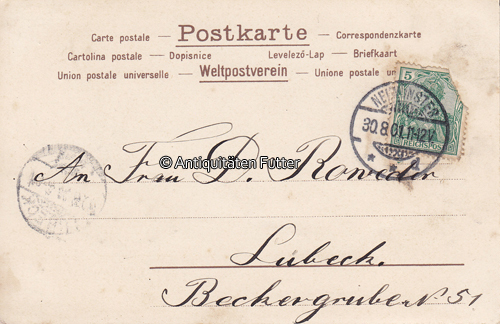 Postkarte
Carte postale — — Correspondenzkarte
Cartolina postale — Dopisnice — Levelező-Lap — Briefkaart
Union postale universelle — Weltpostverein — Unione postale
5
NEUMÜNSTER
30.8.01.11-12V.
REICHSPOST
© Antiquitäten Fütter
An Frau D. Roweder
Lübeck.
Beckergrube N. 51